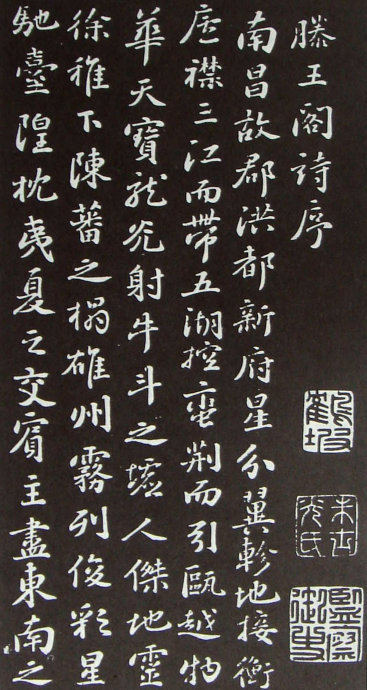 滕王閣詩序
南昌故郡洪都新府星分翼軫地接衡
廬襟三江而帶五湖控蠻荊而引甌越物
華天寶龍光射牛斗之墟人傑地靈
徐稚下陳蕃之榻雄州霧列俊彩星
馳臺隍枕夷夏之交賓主盡東南之
鶴坡
監察御史